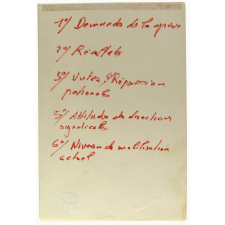 1°/ Demandes de la
2°/ Résultats
3°/ Votes
patronales
5°/ Attitude des directions
syndicales
6°/ Niveau de mobilisation
actuel